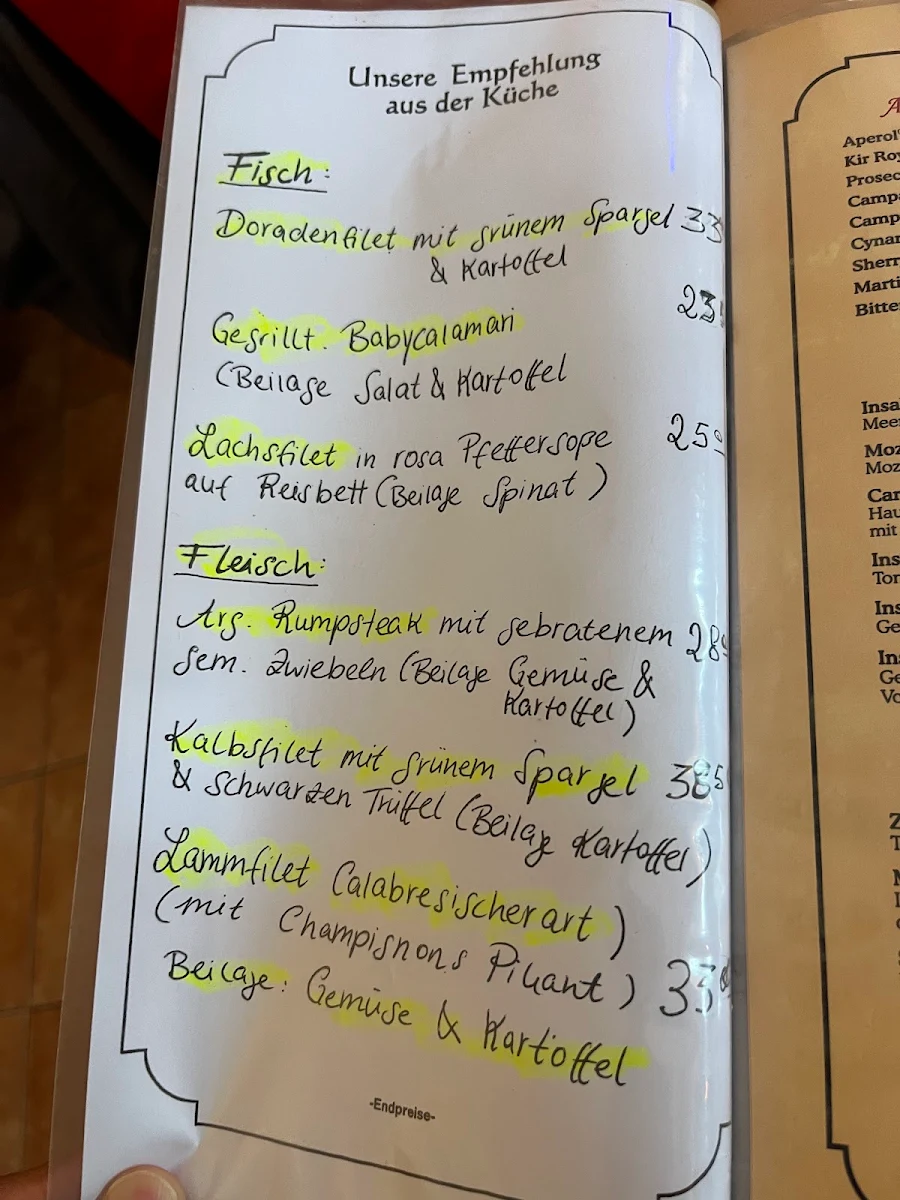 Unsere Empfehlung
aus der Küche
Fisch:
Doradenfilet mit grünem Spargel 33
& Kartoffel
23
Gegrillt. Babycalamari
(Beilage Salat & Kartoffel
Lachsfilet in rosa Pfeffersoße 25
auf Reisbett (Beilage Spinat)
Fleisch:
Arg. Rumpsteak mit gebratenem 28
Gem. Zwiebeln (Beilage Gemüse &
Kartoffel)
Kalbsfilet mit grünem Spargel 38
& schwarzen Trüffel (Beilage Kartoffel)
Lammfilet Calabresischerart)
(mit Champignons Pikant) 33
Beilage: Gemüse & Kartoffel
-Endpreise-
Aperol
Kir Roy
Prosec
Campa
Camp
Cynar
Sherr
Marti
Bitte
Insa
Meer
Moz
Moz
Car
Hau
mit
Ins
Tor
Ins
Ge
In
Ge
Vo